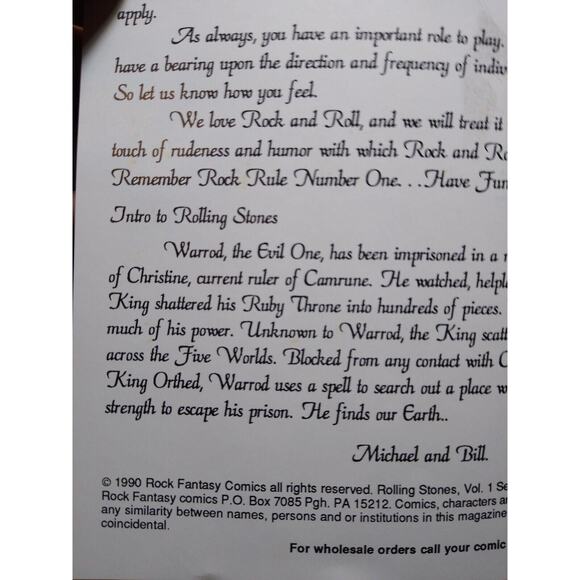 apply.
As always, you have an important role to play.
have a bearing upon the direction and frequency of
So let us know how you feel.
We love Rock and Roll, and we will treat it
touch of rudeness and humor with which Rock and
Remember Rock Rule Number One. . .Have
Intro to Rolling Stones
Warrod, the Evil One, has been imprisoned in a
of Christine, current ruler of Camrune. He watched,
King shattered his Ruby Throne into hundreds of pieces.
much of his power. Unknown to Warrod, the King
across the Five Worlds. Blocked from any contact with
King Orthed, Warrod uses a spell to search out a place
strength to escape his prison. He finds our Earth..
Michael and Bill.
© 1990 Rock Fantasy Comics all rights reserved. Rolling Stones, Vol. 1
Rock Fantasy comics P.O. Box 7085 Pgh. PA 15212. Comics, characters
any similarity between names, persons and or institutions in this magazine
coincidental.
For wholesale orders call your comic